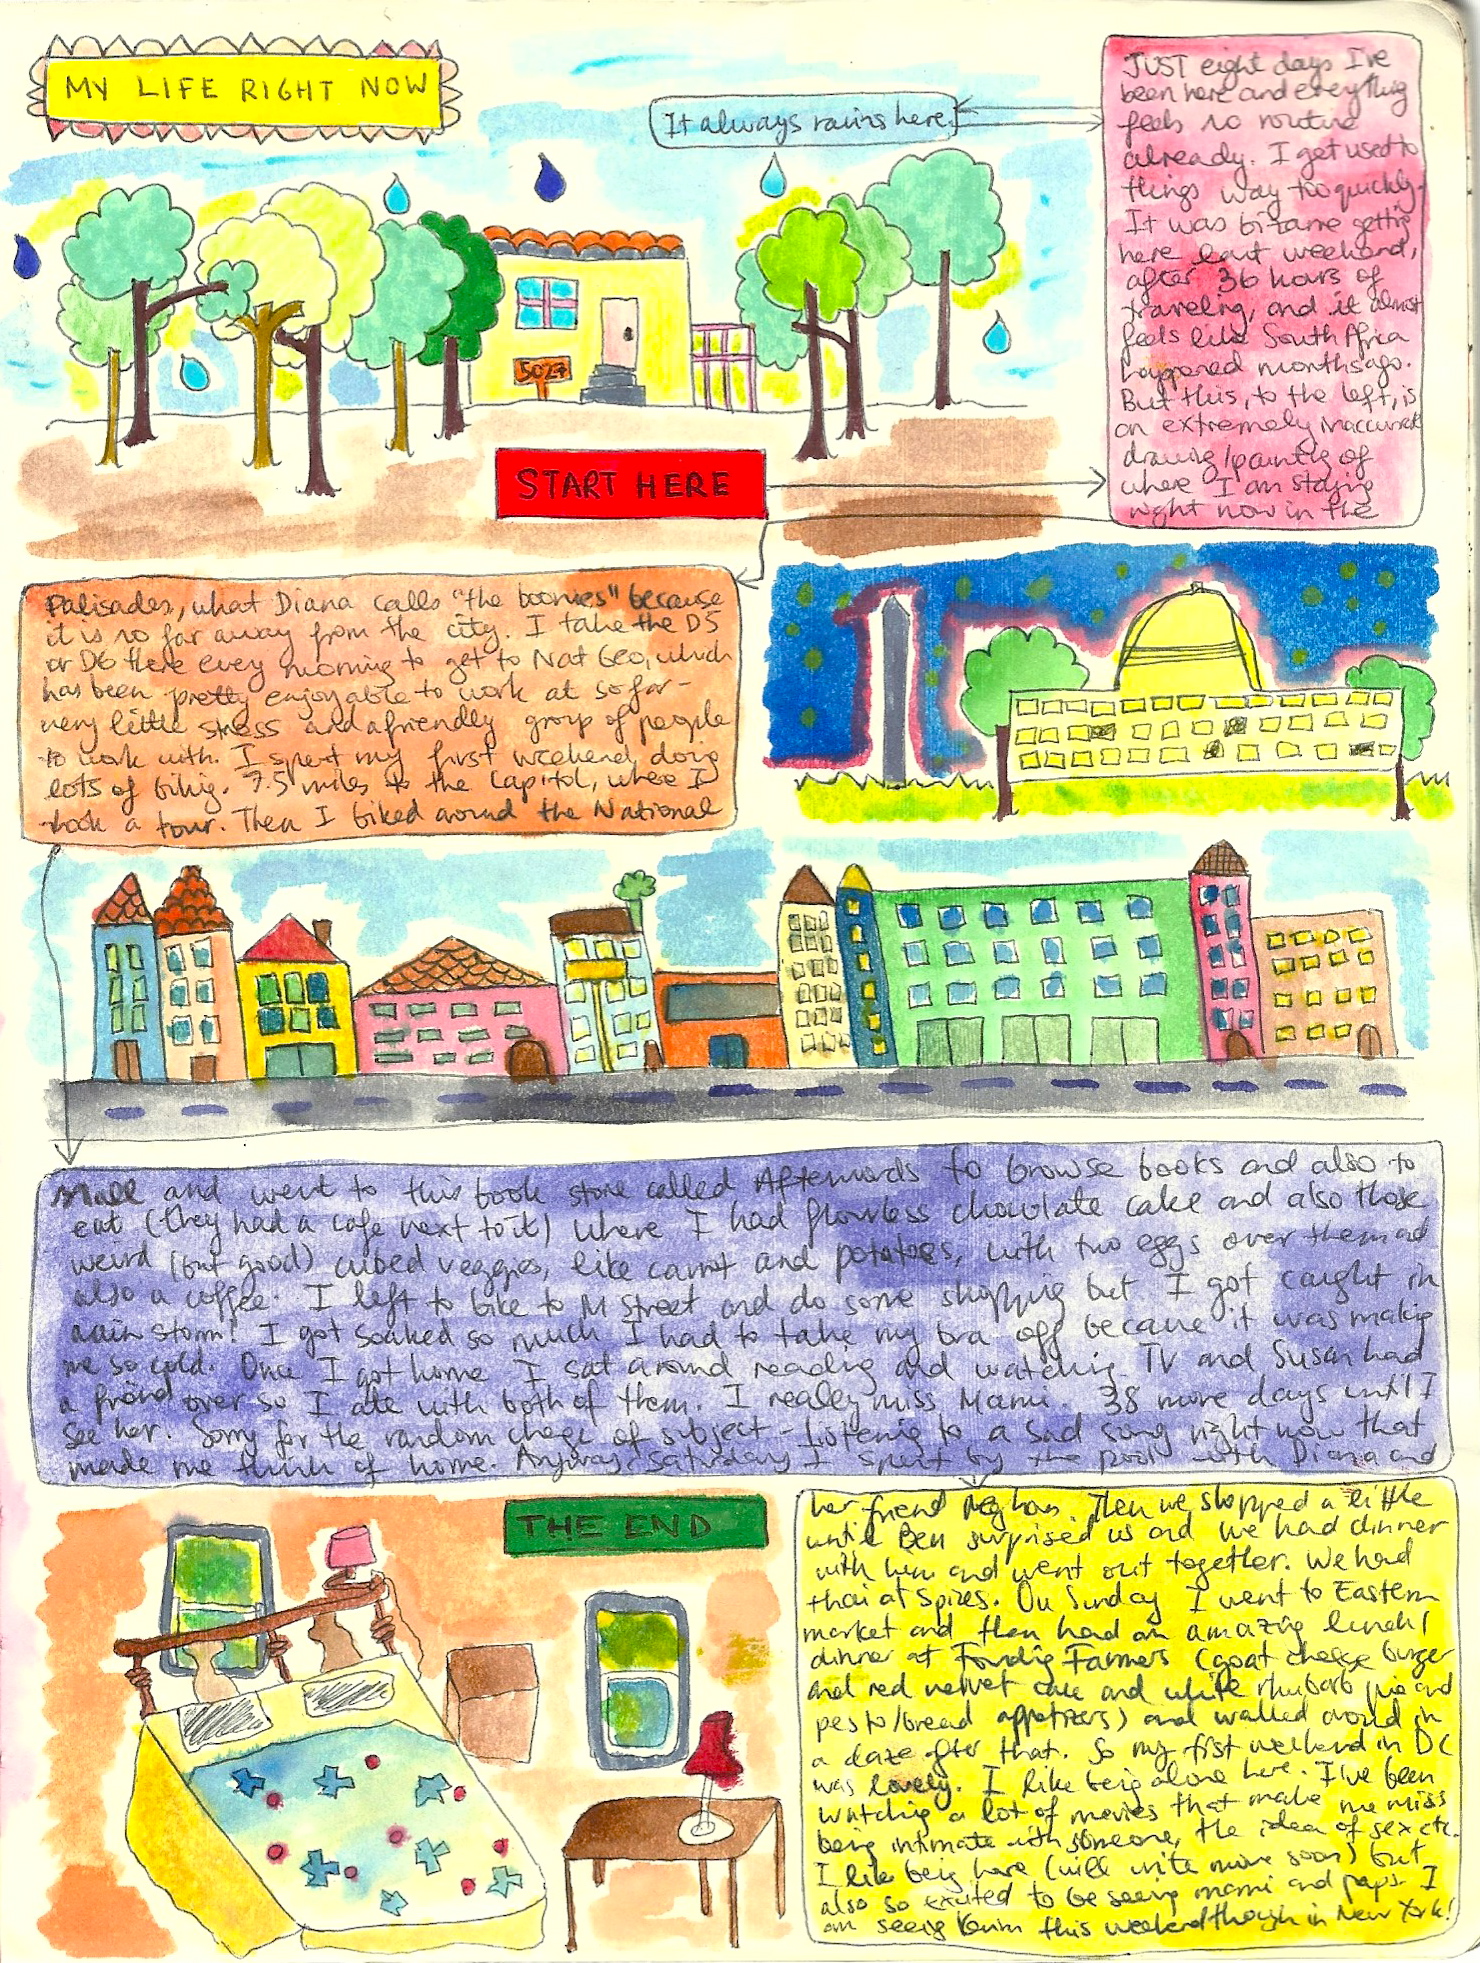 MY LIFE RIGHT NOW
It always rains here.
START HERE
JUST eight days I've
been here and everything
feels so routine
already. I get used to
things way too quickly.
It was bizarre getting
here last weekend,
after 36 hours of
traveling, and it almost
feels like South Africa
happened months ago.
But this, to the left, is
an extremely inaccurate
drawing/painting of
where I am staying
right now in the
5027
Palisades, what Diana calls "the boonies" because
it is so far away from the city. I take the D5
or D6 there every morning to get to Nat Geo, which
has been pretty enjoyable to work at so far-
very little stress and a friendly group of people
to work with. I spent my first weekend doing
lots of biking. 7.5 miles to the Capitol, where I
took a tour. Then I biked around the National
Mall and went to this book store called Afterwords to browse books and also to
eat (they had a cafe next to it) where I had flourless chocolate cake and also those
weird (but good) cubed veggies, like carrot and potatoes, with two eggs over them and
also a coffee. I left to bike to M Street and do some shopping but I got caught in
rain storm! I got soaked so much I had to take my bra off because it was making
me so cold. Once I got home I sat around reading and watching TV and Susan had
a friend over so I ate with both of them. I really miss Mami. 38 more days until I
see her. Sorry for the random change of subject - listening to a sad song right now that
made me think of home. Anyway, Saturday I spent by the pool with Diana and
her friend Meghan. Then we shopped a little
until Ben surprised us and we had dinner
with him and went out together. We had
thai at Spices. On Sunday I went to Eastern
market and then had an amazing lunch/
dinner at Founding Farmers (goat cheese burger
and red velvet cake and white rhubarb pie and
pesto/bread appetizers) and walked around in
a daze after that. So my first weekend in DC
was lovely. I like being alone here. I've been
watching a lot of movies that make me miss
being intimate with someone, the idea of sex etc.
I like being here (will write more soon) but
also so excited to be seeing mami and papi. I
am seeing this weekend though in New York!
THE END